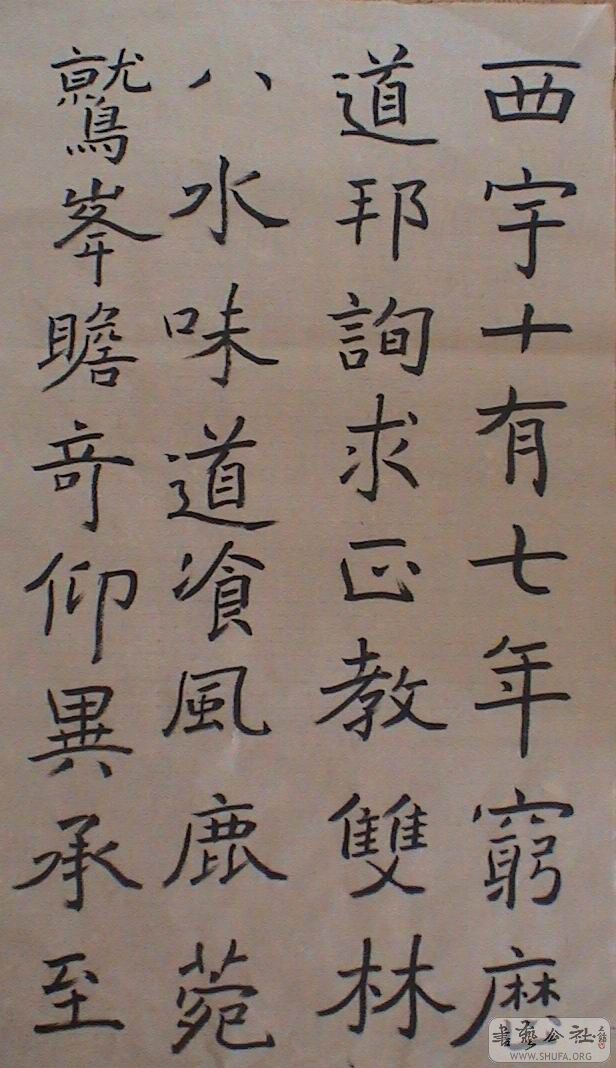 西宇十有七年窮歷
道邦詢求正教雙林
八水味道飡風鹿菀
鷲峯瞻奇仰異承至
書藝公社
WWW.SHUFA.ORG